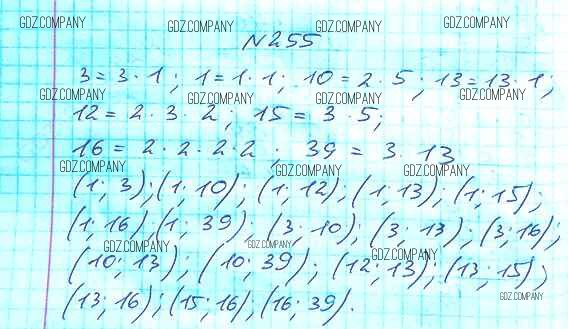 GDZ.COMPANY GDZ.COMPANY GDZ.COMPANY GDZ.COMPANY
N255
3 = 3 · 1; 1 = 1 · 1; 10 = 2 · 5; 13 = 13 · 1;
GDZ.COMPANY GDZ.COMPANY GDZ.COMPANY GDZ.COMPANY
12 = 2 · 3 · 2; 15 = 3 · 5;
16 = 2 · 2 · 2 · 2; 39 = 3 · 13
GDZ.COMPANY GDZ.COMPANY GDZ.COMPANY GDZ.COMPANY
(1; 3); (1; 10); (1; 12); (1; 13); (1; 15);
(1; 16), (1; 39); (3; 10); (3; 13); (3; 16);
GDZ.COMPANY GDZ.COMPANY GDZ.COMPANY
(10; 13); (10; 39); (12; 13); (13; 15);
(13; 16); (15; 16); (16; 39).
GDZ.COMPANY